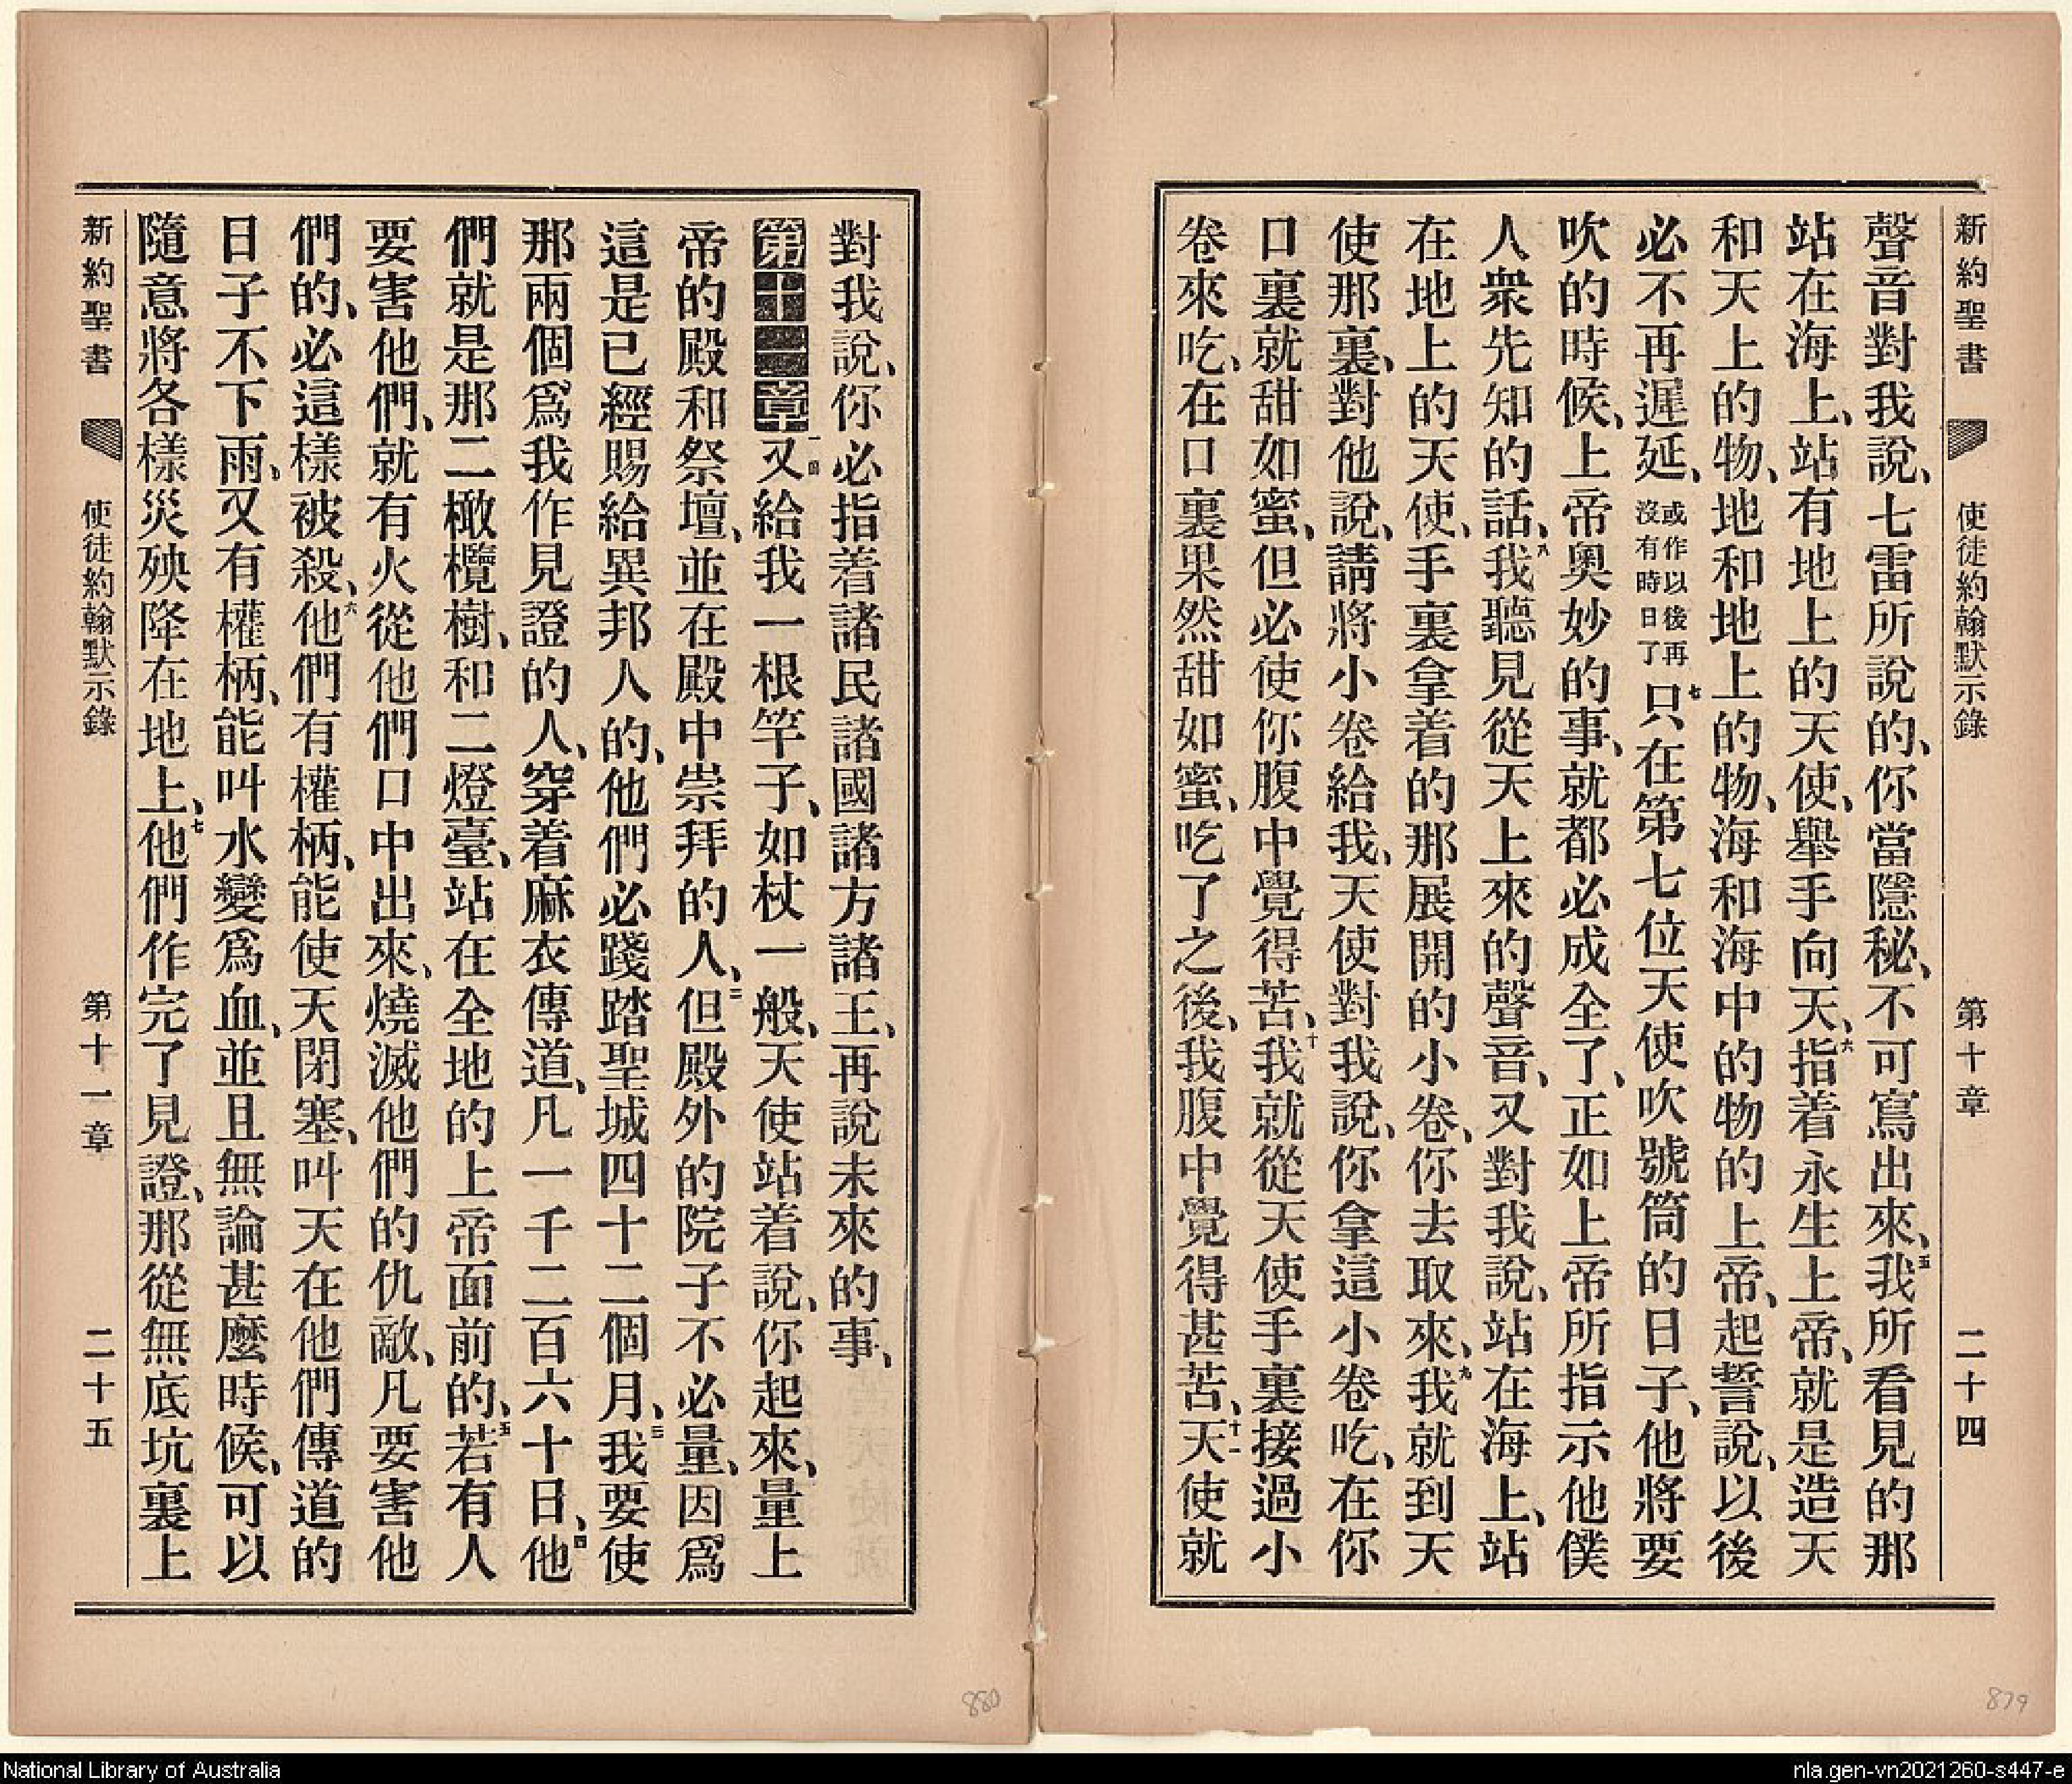 新約聖書 使徒約翰默示錄 第十章 二十四
聲音對我說、七雷所說的、你當隱秘、不可寫出來、五我所看見的那
站在海上、站有地上的天使、舉手向天、六指着永生上帝、就是造天
和天上的物、地和地上的物、海和海中的物的上帝、起誓說、以後
必不再遲延、或作以後再沒有時日了七只在第七位天使吹號筒的日子、他將要
吹的時候、上帝奧妙的事、就都必成全了、正如上帝所指示他僕
人衆先知的話、八我聽見從天上來的聲音、又對我說、站在海上、站
在地上的天使、手裏拿着的那展開的小卷、你去取來、九我就到天
使那裏、對他說、請將小卷給我、天使對我說、你拿這小卷吃、在你
口裏就甜如蜜、但必使你腹中覺得苦、十我就從天使手裏接過小
卷來吃、在口裏果然甜如蜜、吃了之後、我腹中覺得甚苦、十一天使就
對我說、你必指着諸民諸國諸方諸王、再說未來的事、
第十一章一又給我一根竿子、如杖一般、天使站着說、你起來、量上
帝的殿和祭壇、並在殿中崇拜的人、二但殿外的院子不必量、因爲
這是已經賜給異邦人的、他們必踐踏聖城四十二個月、三我要使
那兩個爲我作見證的人、穿着麻衣傳道、凡一千二百六十日、四他
們就是那二橄欖樹、和二燈臺、站在全地的上帝面前的、五若有人
要害他們、就有火從他們口中出來、燒滅他們的仇敵、凡要害他
們的、必這樣被殺、六他們有權柄、能使天閉塞、叫天在他們傳道的
日子不下雨、又有權柄、能叫水變爲血、並且無論甚麼時候、可以
隨意將各樣災殃降在地上、七他們作完了見證、那從無底坑裏上
新約聖書 使徒約翰默示錄 第十一章 二十五
880
879
National Library of Australia
nla.gen-vn2021260-s447-e